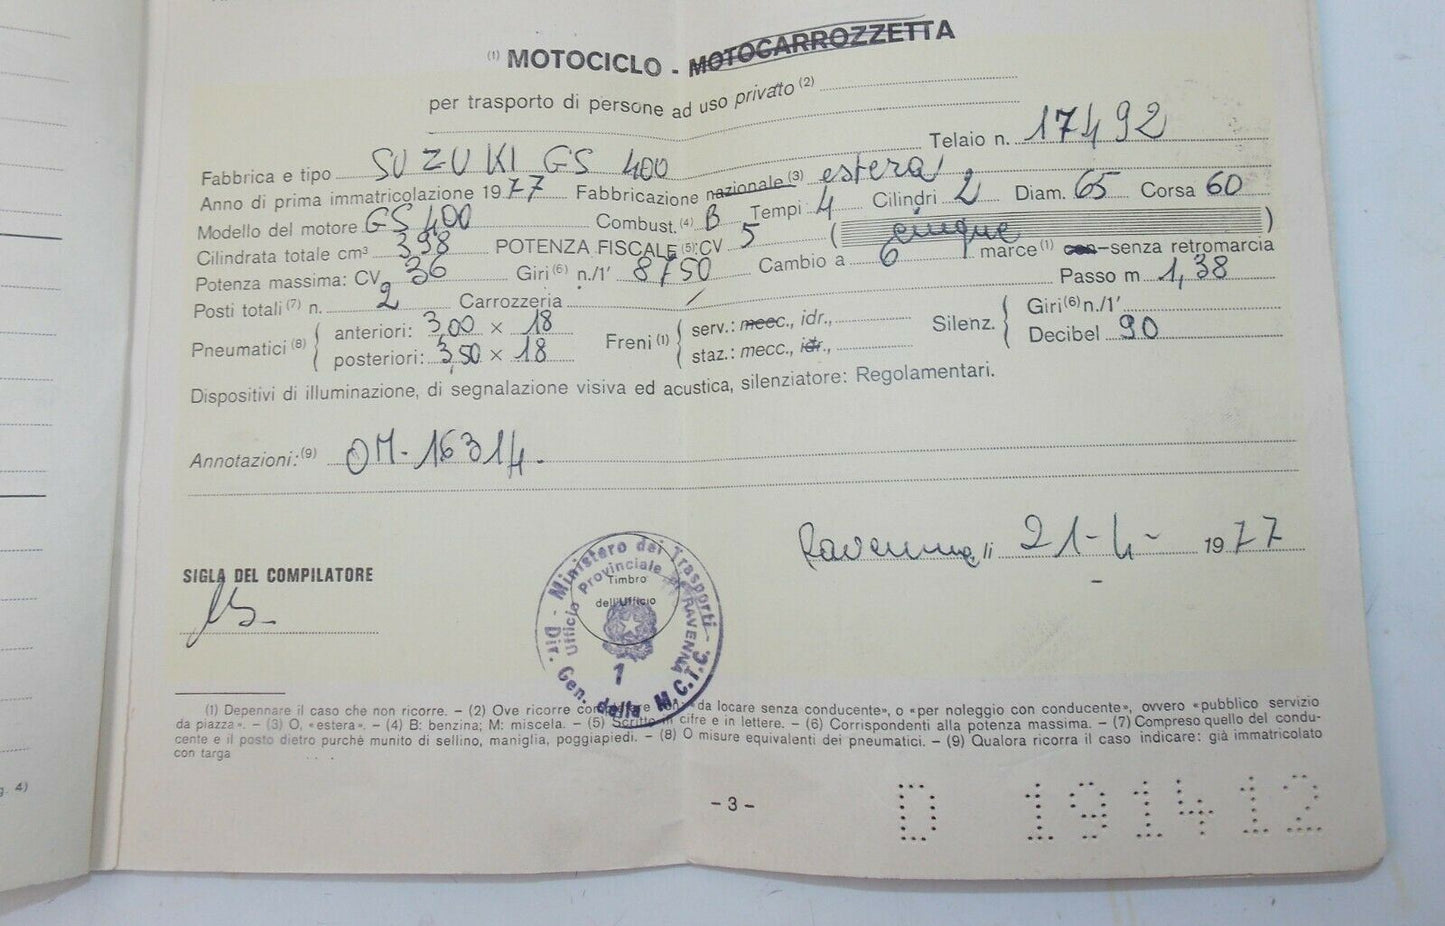 (1) MOTOCICLO - MOTOCARROZZETTA
per trasporto di persone ad uso privato (2)
Telaio n. 17492
Fabbrica e tipo SUZUKI GS 400
Anno di prima immatricolazione 1977 Fabbricazione nazionale (3) estera
Modello del motore GS 400 Combust. (4) B Tempi 4 Cilindri 2 Diam. 65 Corsa 60
Cilindrata totale cm³ 398 POTENZA FISCALE (5): CV 5 (cinque)
Potenza massima: CV 36 Giri (6) n./1' 8750 Cambio a 6 marce (1) con-senza retromarcia
Posti totali (7) n. 2 Carrozzeria / Passo m 1,38
Pneumatici (8) { anteriori: 3,00 × 18
posteriori: 3,50 × 18
Freni (1) { serv.: mecc., idr.,
staz.: mecc., idr.,
Silenz. { Giri (6) n./1'
Decibel 90
Dispositivi di illuminazione, di segnalazione visiva ed acustica, silenziatore: Regolamentari.
Annotazioni: (9) OM-16314.
Ravenna, lì 21-4- 1977
SIGLA DEL COMPILATORE
Timbro
dell'Ufficio
Ministero dei Trasporti - Dir. Gen. della M.C.T.C.
Ufficio Provinciale di RAVENNA
1
(1) Depennare il caso che non ricorre. – (2) Ove ricorre «da locare senza conducente», o «per noleggio con conducente», ovvero «pubblico servizio
da piazza». – (3) O, «estera». – (4) B: benzina; M: miscela. – (5) Scritto in cifre e in lettere. – (6) Corrispondenti alla potenza massima. – (7) Compreso quello del condu-
cente e il posto dietro purchè munito di sellino, maniglia, poggiapiedi. – (8) O misure equivalenti dei pneumatici. – (9) Qualora ricorra il caso indicare: già immatricolato
con targa
g. 4)
– 3 –
D 191412